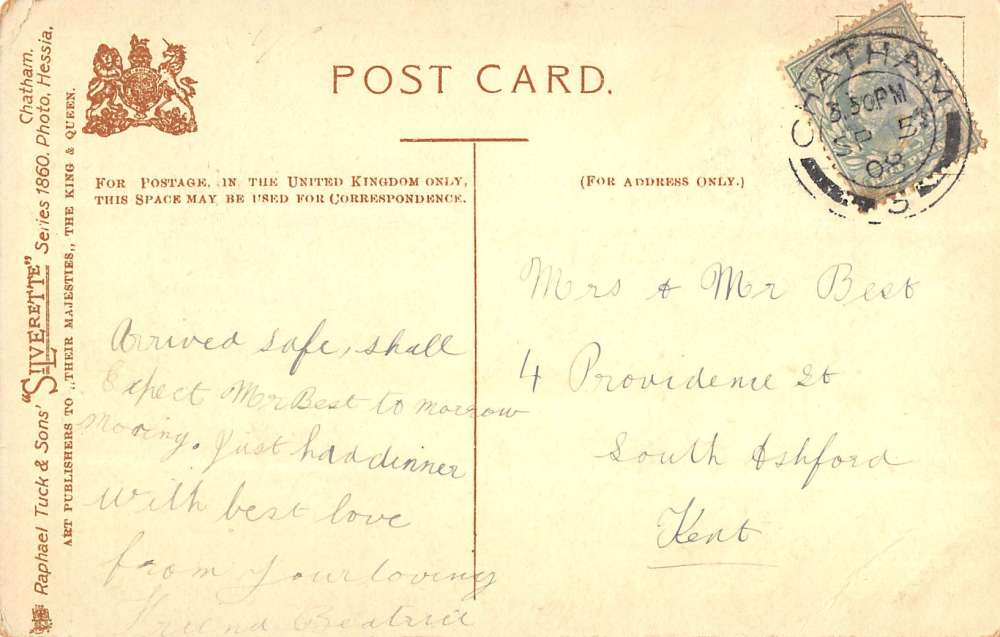 Chatham.
Raphael Tuck & Sons' "SILVERETTE" Series 1860. Photo, Hessia.
ART PUBLISHERS TO „THEIR MAJESTIES„ THE KING & QUEEN.
POST CARD.
FOR POSTAGE, IN THE UNITED KINGDOM ONLY,
THIS SPACE MAY BE USED FOR CORRESPONDENCE.
(FOR ADDRESS ONLY.)
CHATHAM
3.50PM
SP 5
08
5
Arrived safe, shall
Expect Mr Best to morrow
moring. Just had dinner
with best love
from your loving
Friend Beatrice
Mrs & Mr Best
4 Providence St
South Ashford
Kent